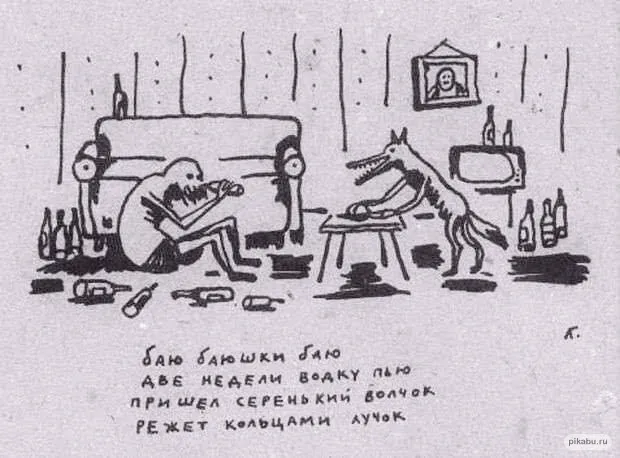 К.
баю баюшки баю
две недели водку пью
пришел серенький волчок
режет кольцами лучок
pikabu.ru